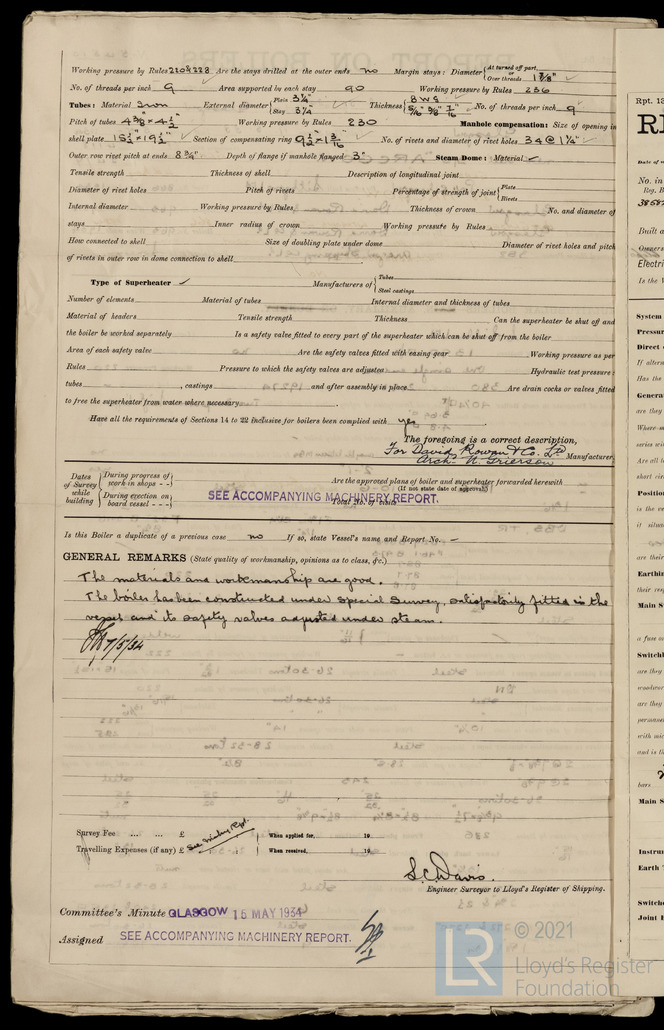 Working pressure by Rules 220 & 223 Are the stays drilled at the outer ends no Margin stays: Diameter { At turned off part, or Over threads 1 7/8" ✓
No. of threads per inch 9 ✓ Area supported by each stay 90 Working pressure by Rules 236
Tubes: Material Iron External diameter { Plain 3 1/4" Stay 3 1/4" Thickness { 8 WG 5/16" 3/8" 7/16" ✓ No. of threads per inch 9 ✓
Pitch of tubes 4 3/8" × 4 1/2" Working pressure by Rules 230 Manhole compensation: Size of opening in
shell plate 15 1/2" × 19 1/2" ✓ Section of compensating ring 9 1/2" × 1 3/16" ✓ No. of rivets and diameter of rivet holes 34 @ 1 1/4" ✓
Outer row rivet pitch at ends 8 3/4" Depth of flange if manhole flanged 3" Steam Dome: Material ✓
Tensile strength Thickness of shell Description of longitudinal joint
Diameter of rivet holes Pitch of rivets Percentage of strength of joint { Plate Rivets
Internal diameter Working pressure by Rules Thickness of crown No. and diameter of
stays Inner radius of crown Working pressure by Rules
How connected to shell Size of doubling plate under dome Diameter of rivet holes and pitch
of rivets in outer row in dome connection to shell
Type of Superheater ✓ Manufacturers of { Tubes Steel castings
Number of elements Material of tubes Internal diameter and thickness of tubes
Material of headers Tensile strength Thickness Can the superheater be shut off and
the boiler be worked separately Is a safety valve fitted to every part of the superheater which can be shut off from the boiler
Area of each safety valve Are the safety valves fitted with easing gear Working pressure as per
Rules Pressure to which the safety valves are adjusted Hydraulic test pressure:
tubes , castings and after assembly in place Are drain cocks or valves fitted
to free the superheater from water where necessary
Have all the requirements of Sections 14 to 22 inclusive for boilers been complied with yes
The foregoing is a correct description,
For David Rowan & Co. Ld Manufacturer.
Arch. W. Grierson
Dates of Survey while building { During progress of work in shops - - During erection on board vessel - - -
Are the approved plans of boiler and superheater forwarded herewith
(If not state date of approval)
SEE ACCOMPANYING MACHINERY REPORT.
Total No. of visits
Is this Boiler a duplicate of a previous case no If so, state Vessel's name and Report No. —
GENERAL REMARKS (State quality of workmanship, opinions as to class, &c.)
The materials and workmanship are good.
The boiler has been constructed under special survey, satisfactorily fitted in the
vessel and its safety valves adjusted under steam.
7/5/34
Survey Fee ... ... £ See Mchy Rpt. When applied for, 19
Travelling Expenses (if any) £ When received, 19
S. C. Davis.
Engineer Surveyor to Lloyd's Register of Shipping.
Committee's Minute GLASGOW 15 MAY 1934
Assigned SEE ACCOMPANYING MACHINERY REPORT.
© 2021
Lloyd's Register
Foundation
Rpt. 13
Date of
No. in
Reg. B
Built a
Owners
Electri
Is the
System
Pressur
Direct
If altern
Has the
Genera
are they
Where
series wi
Are all
short cir
Positio
is the
if situa
are their
Earthin
their res
Main S
a fuse o
Switchb
woodwor
are they
permane
with mic
and is th
bars
Main S
Instrum
Earth
Switche
Joint